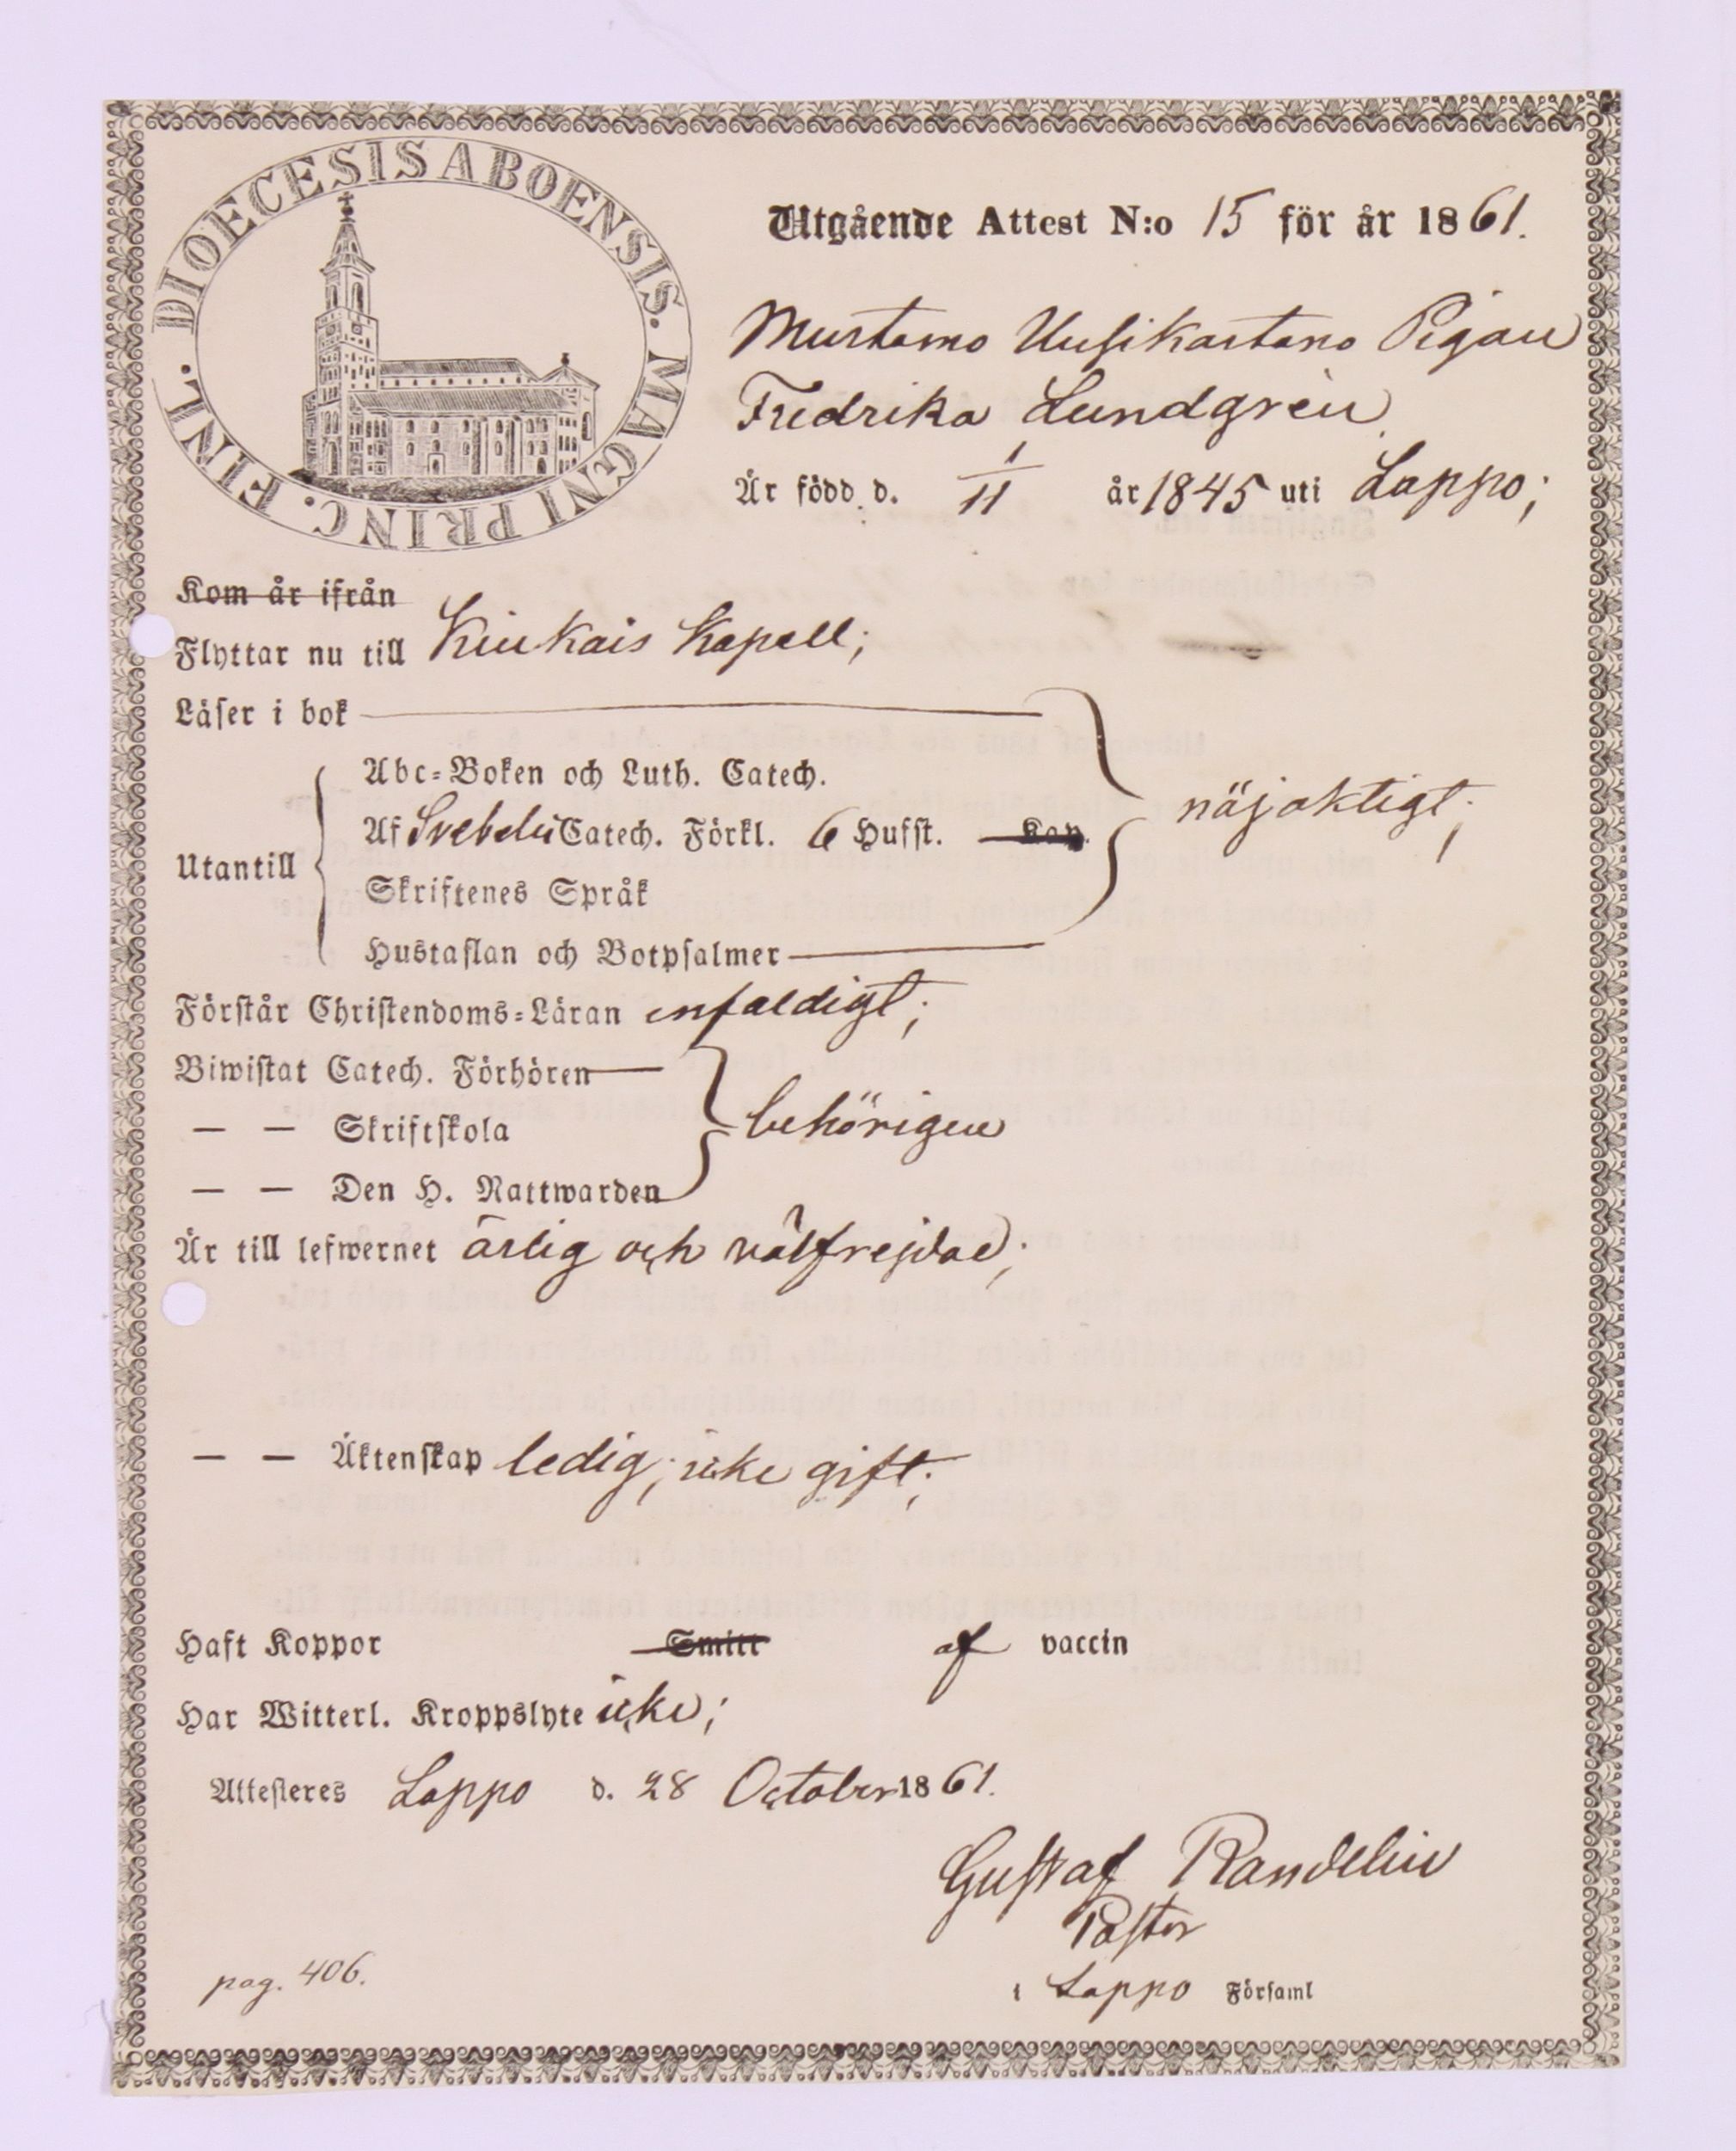 DIOECESIS ABOENSIS. MAGNI PRINC. FINL.
Utgående Attest N:o 15 för år 1861.
Murtamo Uusikartano Pigan
Fredrika Lundgrèn
Är född d. 1/11 år 1845 uti Lappo;
Kom år ifrån
Flyttar nu till Kiukais Kapell;
Läser i bok
Abc-Boken och Luth. Catech.
Af Svebelii Catech. Förkl. 6 Hufst. Kap. nöjaktigt;
Utantill
Skriftenes Språk
Hustaflan och Botpsalmer
Förstår Christendoms-Läran enfaldigt;
Biwistat Catech. Förhören
— — Skriftskola behörigen
— — Den H. Nattwarden
Är till lefwernet ärlig och välfrejdad;
— — Äktenskap ledig; icke gift;
Haft Koppor Smitt af vaccin
Har Witterl. Kroppslyte icke;
Attesteres Lappo d. 28 October 1861.
Gustaf Randelin
Pastor
i Lappo Församl
pag. 406.